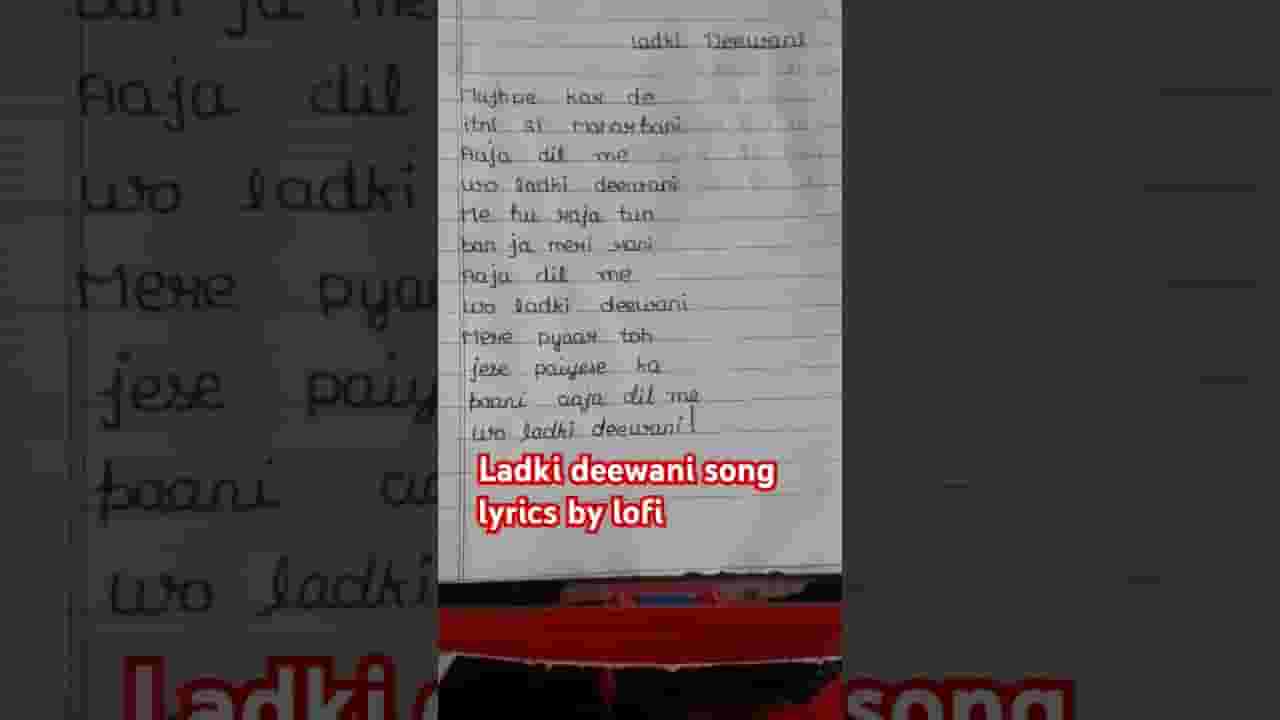 Ladki Deewani
Mujhpe kar de
itni si maharbani
Aaja dil me
wo ladki deewani
Me hu raja tun
ban ja meri rani
Aaja dil me
wo ladki deewani
Mere pyaar toh
jese paiyese ka
paani aaja dil me
wo ladki deewani!
Ladki deewani song
lyrics by lofi